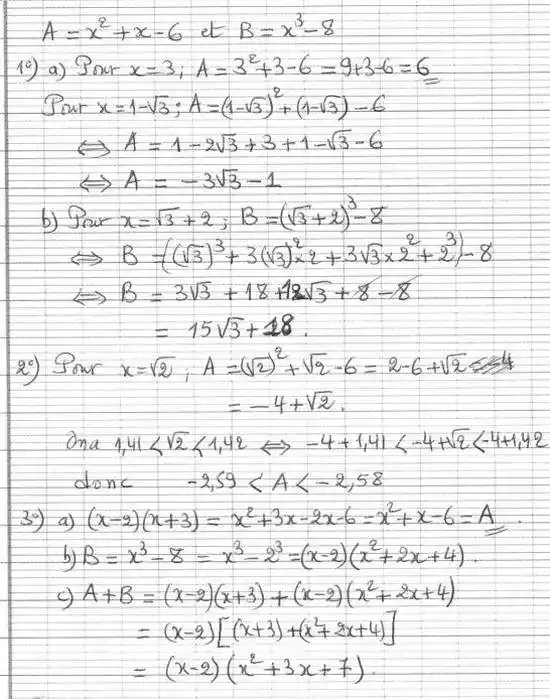 A = x² + x - 6 et B = x³ - 8
1°) a) Pour x = 3 ; A = 3² + 3 - 6 = 9 + 3 - 6 = 6
Pour x = 1 - √3 ; A = (1 - √3)² + (1 - √3) - 6
⇔ A = 1 - 2√3 + 3 + 1 - √3 - 6
⇔ A = -3√3 - 1
b) Pour x = √3 + 2 ; B = (√3 + 2)³ - 8
⇔ B = ((√3)³ + 3(√3)² × 2 + 3√3 × 2² + 2³) - 8
⇔ B = 3√3 + 18 + 12√3 + 8 - 8
= 15√3 + 18.
2°) Pour x = √2 ; A = (√2)² + √2 - 6 = 2 - 6 + √2
= -4 + √2.
Ona 1,41 < √2 < 1,42 ⇔ -4 + 1,41 < -4 + √2 < -4 + 1,42
donc -2,59 < A < -2,58
3°) a) (x - 2)(x + 3) = x² + 3x - 2x - 6 = x² + x - 6 = A.
b) B = x³ - 8 = x³ - 2³ = (x - 2)(x² + 2x + 4).
c) A + B = (x - 2)(x + 3) + (x - 2)(x² + 2x + 4)
= (x - 2)[(x + 3) + (x² + 2x + 4)]
= (x - 2)(x² + 3x + 7).